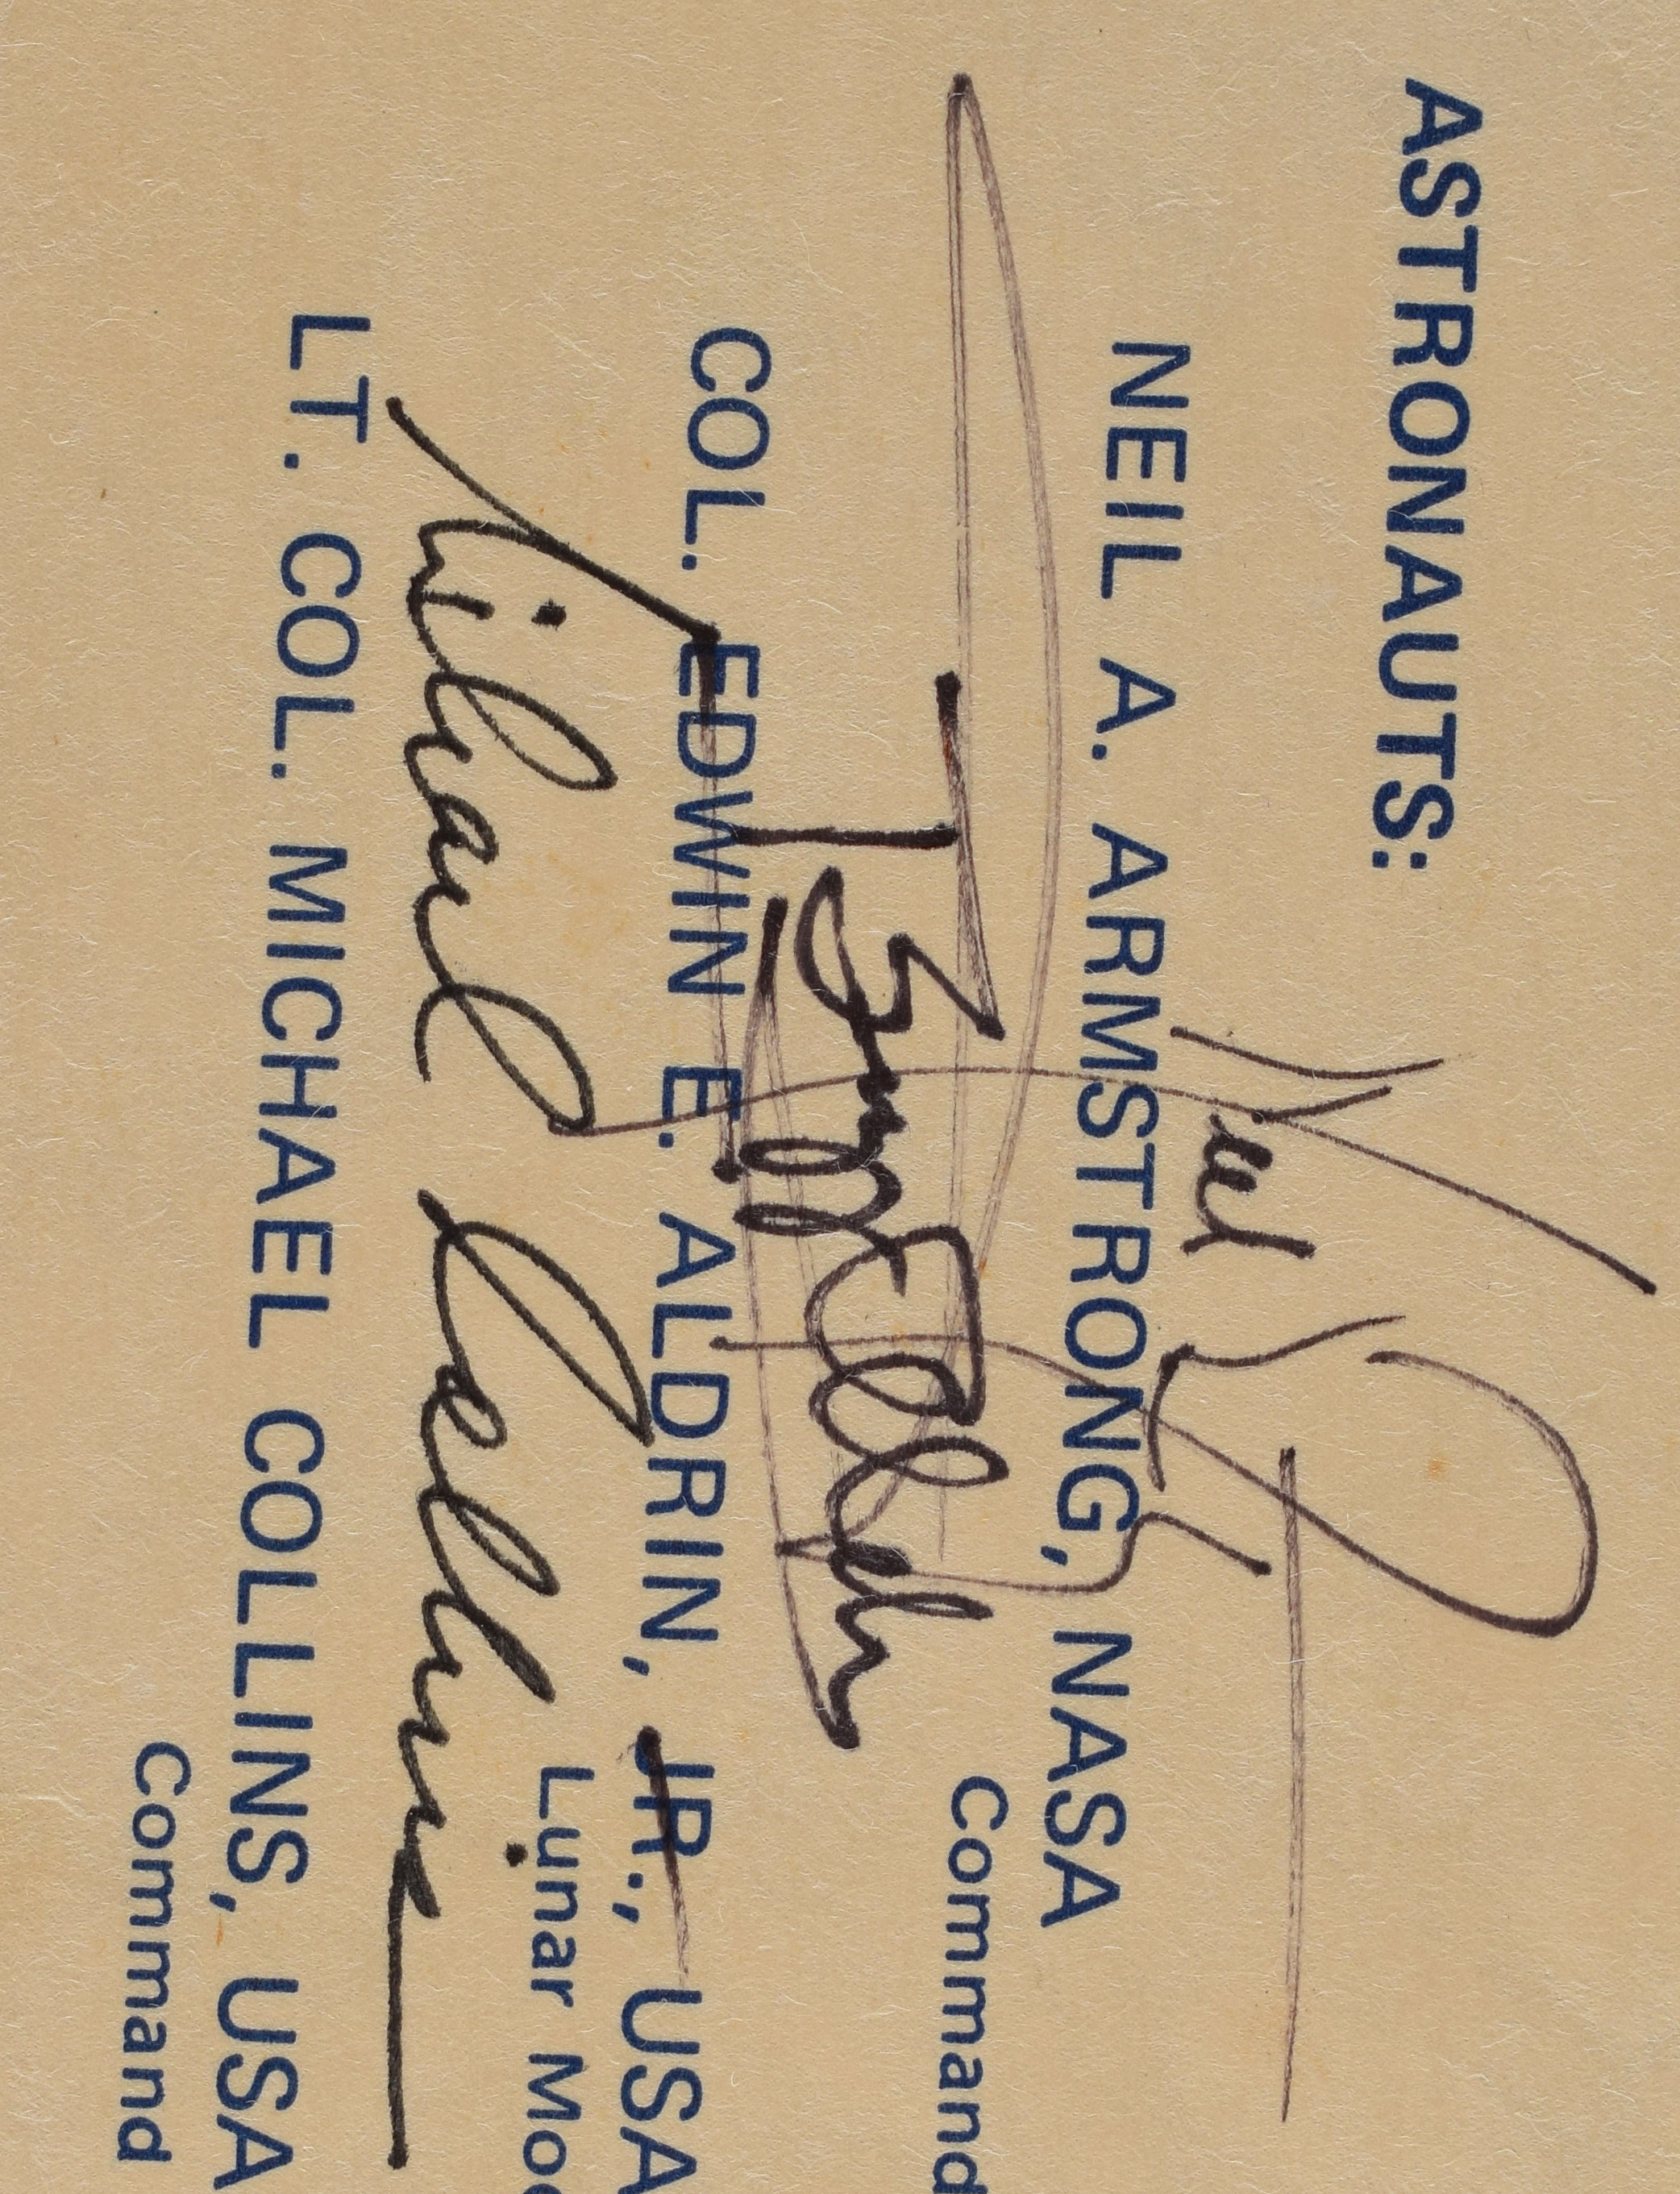 ASTRONAUTS:
Neil
NEIL A. ARMSTRONG, NASA
Command
Buzz Aldrin
COL. EDWIN E. ALDRIN, JR., USA
Lunar Mod
Michael Collins
LT. COL. MICHAEL COLLINS, USA
Command